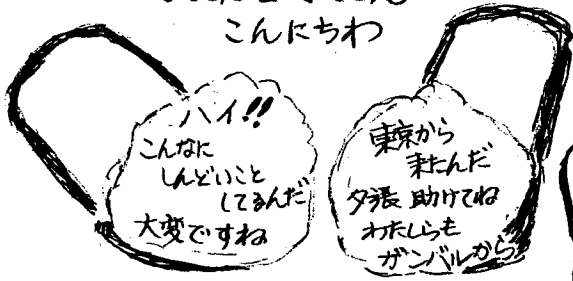 こんにちわ
ハイ!!
こんなに
しんどいこと
してるんだ
大変ですね
東京から
来たんだ
夕張 助けてね
わたしらも
ガンバルから